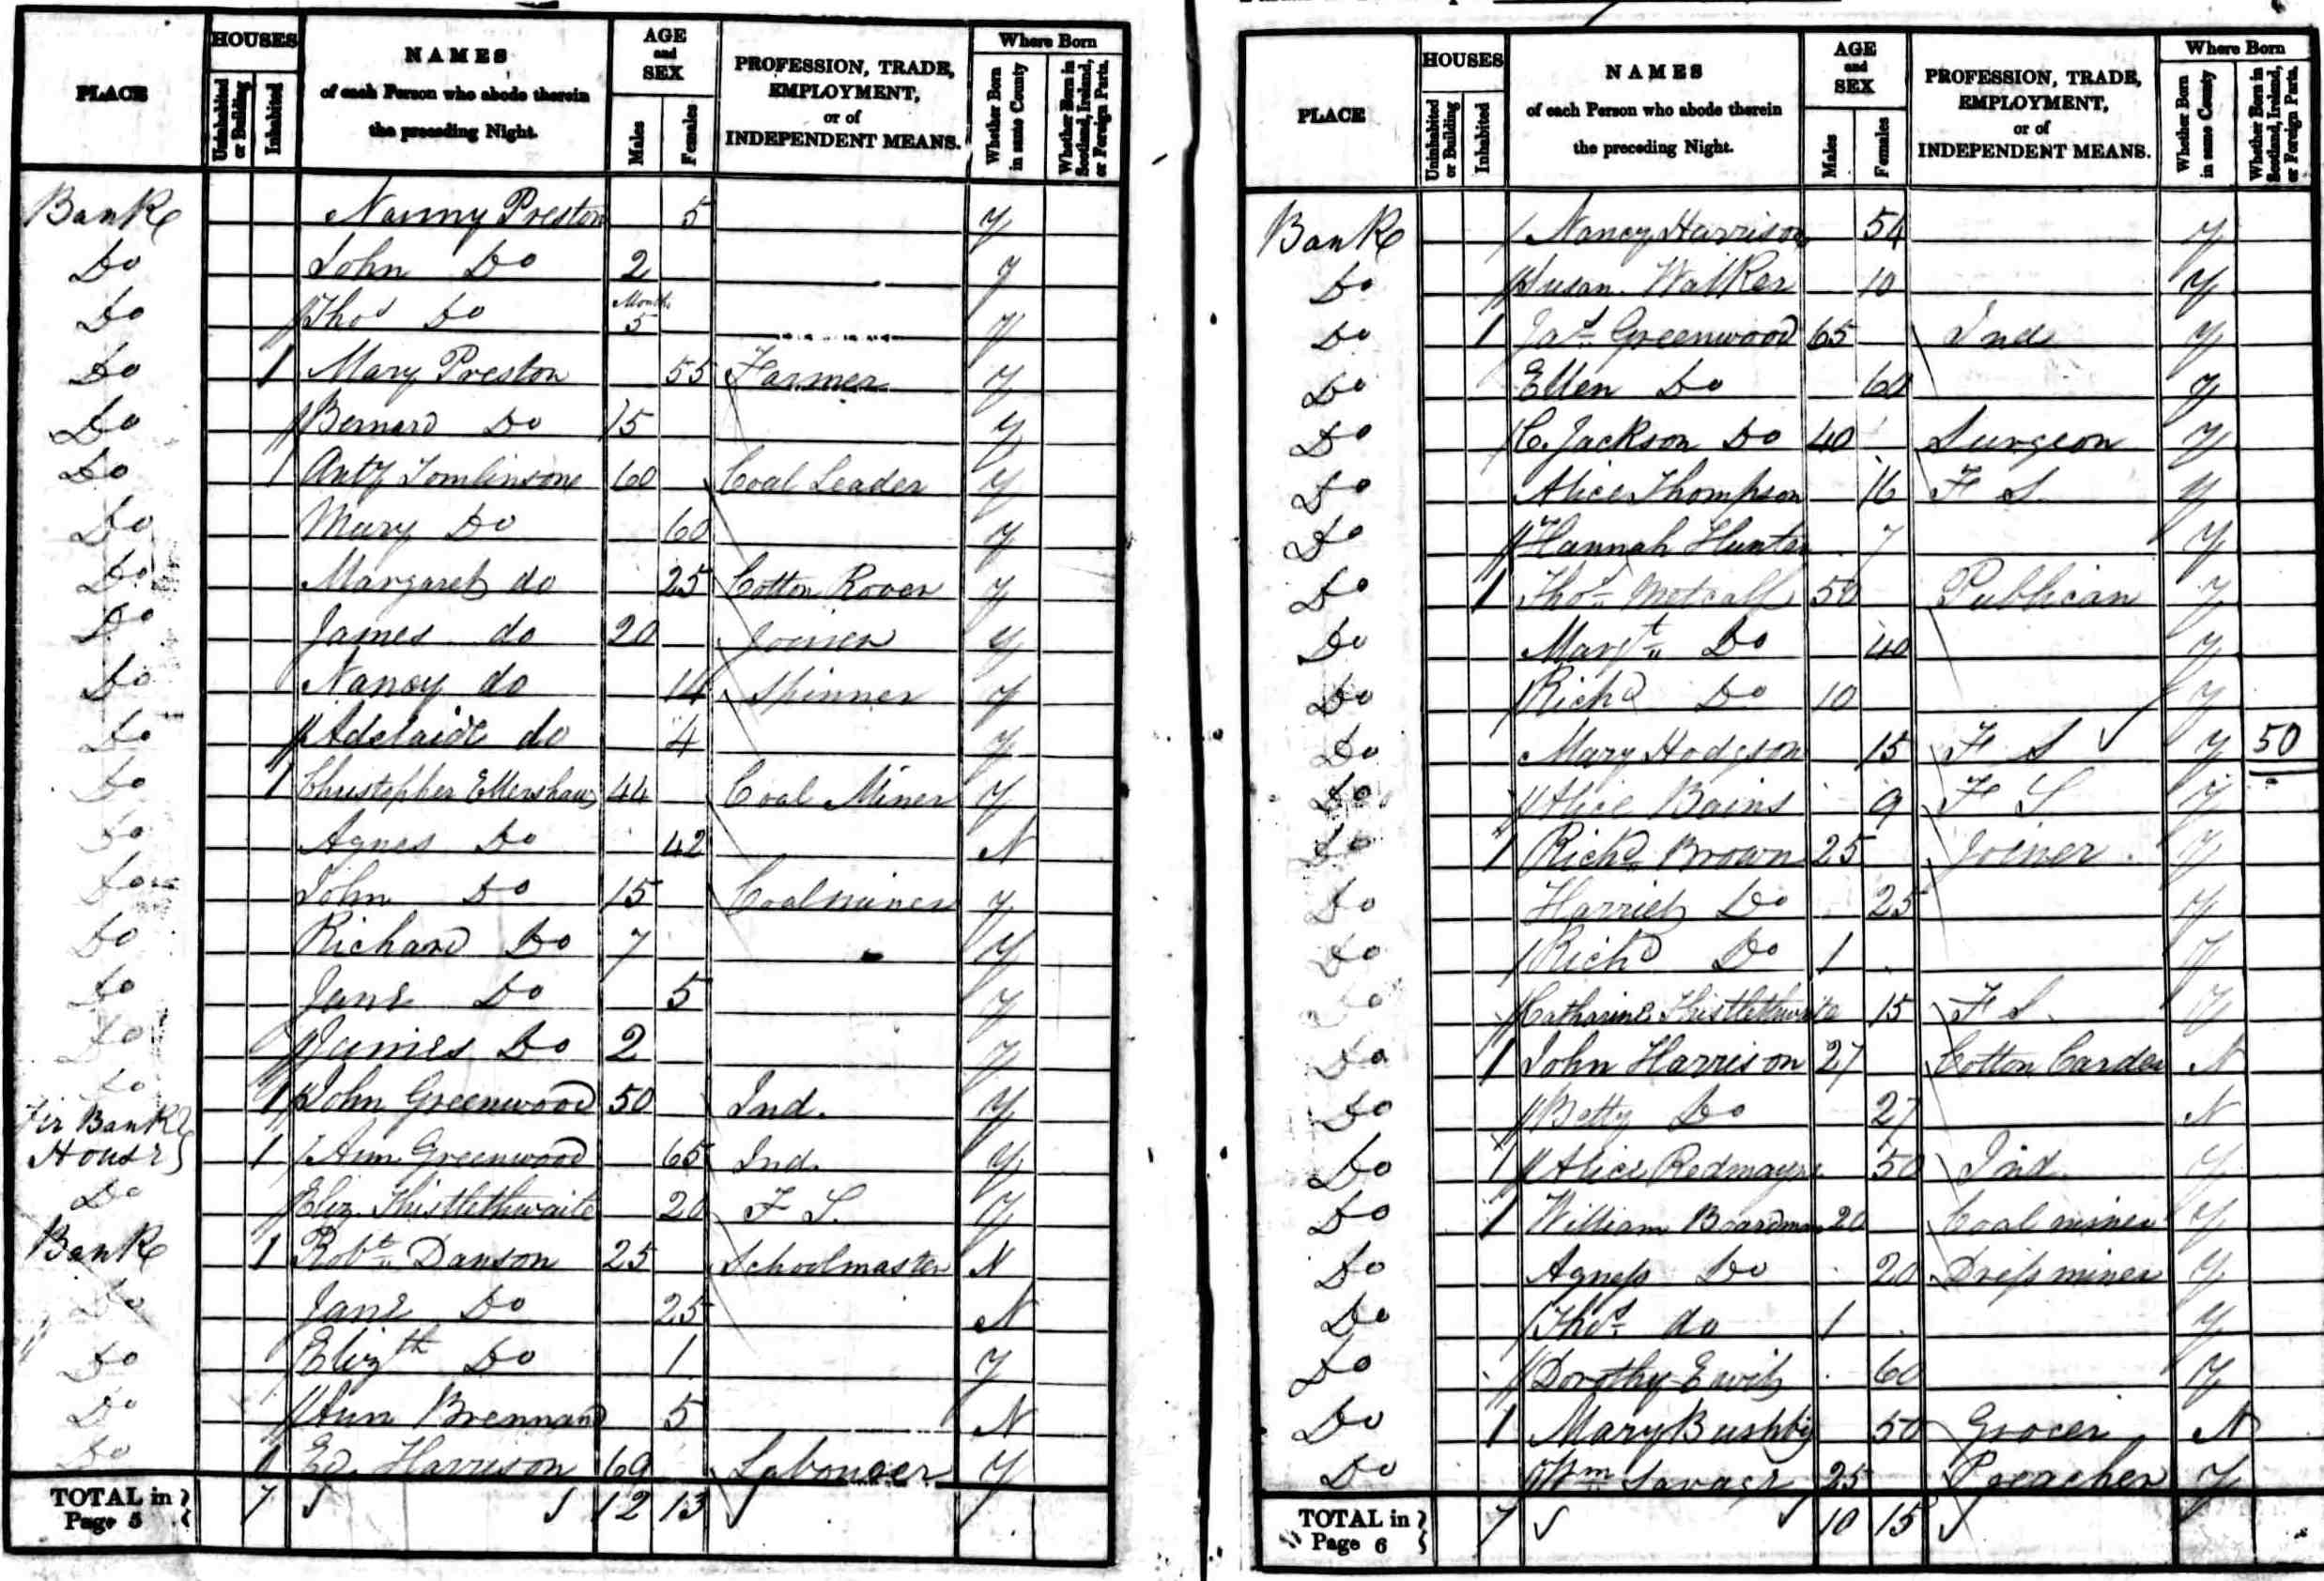 PLACE HOUSES Uninhabited or Building Inhabited NAMES of each Person who abode therein the preceding Night. AGE and SEX Males Females PROFESSION, TRADE, EMPLOYMENT, or of INDEPENDENT MEANS. Where Born Whether Born in same County Whether Born in Scotland, Ireland, or Foreign Parts.
Bank Nanny Preston 5 y
Do John Do 2 y
Do Thos Do Months 5 y
Do 1 Mary Preston 55 Farmer y
Do Bernard Do 15 y
Do 1 Anty Tomlinsone 60 Coal Leader y
Do Mary Do 60 y
Do Margaret do 25 Cotton Rover y
Do James do 20 Joiner y
Do Nancy do 14 Spinner y
Do Adelaide do 4 y
Do 1 Christopher Ellershaw 44 Coal Miner y
Do Agnes Do 42 N
Do John Do 15 Coalminer y
Do Richard Do 7 y
Do Jane Do 5 y
Do James Do 2 y
Do 1 John Greenwood 50 Ind. y
Fir Bank House 1 Ann Greenwood 65 Ind. y
Do Eliz. Thistlethwaite 20 F S. y
Bank 1 Robt Dawson 25 Schoolmaster N
Do Jane Do 25 N
Do Elizth Do 1 y
Do Ann Brennand 5 N
Do 1 Ed. Harrison 69 Labourer y
TOTAL in Page 5 7 12 13
PLACE HOUSES Uninhabited or Building Inhabited NAMES of each Person who abode therein the preceding Night. AGE and SEX Males Females PROFESSION, TRADE, EMPLOYMENT, or of INDEPENDENT MEANS. Where Born Whether Born in same County Whether Born in Scotland, Ireland, or Foreign Parts.
Bank Nancy Harrison 54 y
Do Susan Walker 10 y
Do 1 Jas Greenwood 65 Ind y
Do Ellen Do 60 y
Do C. Jackson Do 40 Surgeon y
Do Alice Thompson 16 F S. y
Do Hannah Hunter 7 y
Do 1 Thos Metcalf 50 Publican y
Do Margt Do 40 y
Do Richd Do 10 y
Do Mary Hodgson 15 F S y 50
Do Alice Bains 9 F S y
Do 1 Richd Brown 25 Joiner y
Do Harriet Do 25 y
Do Richd Do 1 y
Do Catharine Thistlethwaite 15 F S. y
Do 1 John Harrison 27 Cotton Carder N
Do Betty Do 27 N
Do 1 Alice Redmayne 50 Ind y
Do 1 William Boardman 20 Coal miner y
Do Agness Do 20 Dress miner y
Do Thos do 1 y
Do Dorothy 60 y
Do 1 Mary Bushby 50 Grocer N
Do Wm Savage 25 Preacher y
TOTAL in Page 6 7 10 15